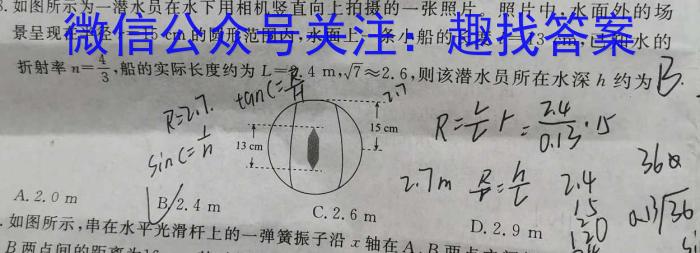 8.如图所示为一潜水员在水下用相机竖直向上拍摄的一张照片。照片中,水面外的场
景呈现在半径r=15 cm的圆形范围内,水面上一条小船的 3 cm,已知水的
微信公众号关注：趣找答案
折射率n=4/3,船的实际长度约为L=2.4 m,√7≈2.6,则该潜水员所在水深h约为 B.
R=2.7.
tanC=R/H
2.7
sinC=1/n
13 cm
15 cm
R=L/l r=2.4/0.13·15
2.7m
2.4
15
120
360
0.13√36
A.2.0 m
B.2.4 m
C.2.6 m
D.2.9 m
.如图所示,串在水平光滑杆上的一弹簧振子沿x轴在A、B两点
B两点间的距离为